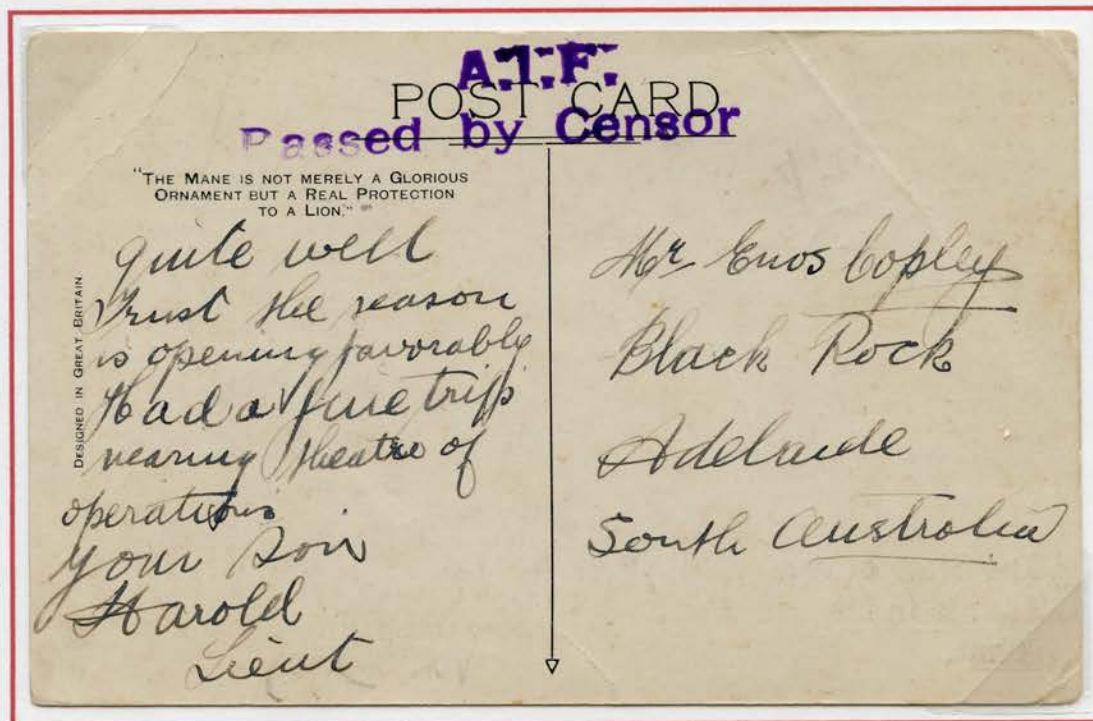 A.I.F.
POST CARD
Passed by Censor
"THE MANE IS NOT MERELY A GLORIOUS
ORNAMENT BUT A REAL PROTECTION
TO A LION."
DESIGNED IN GREAT BRITAIN
quite well
Trust the season
is opening favorably
Had a fine trip
nearing theatre of
operations
your son
Harold
Lieut
Mr Enos Copley
Black Rock
Adelaide
South Australia